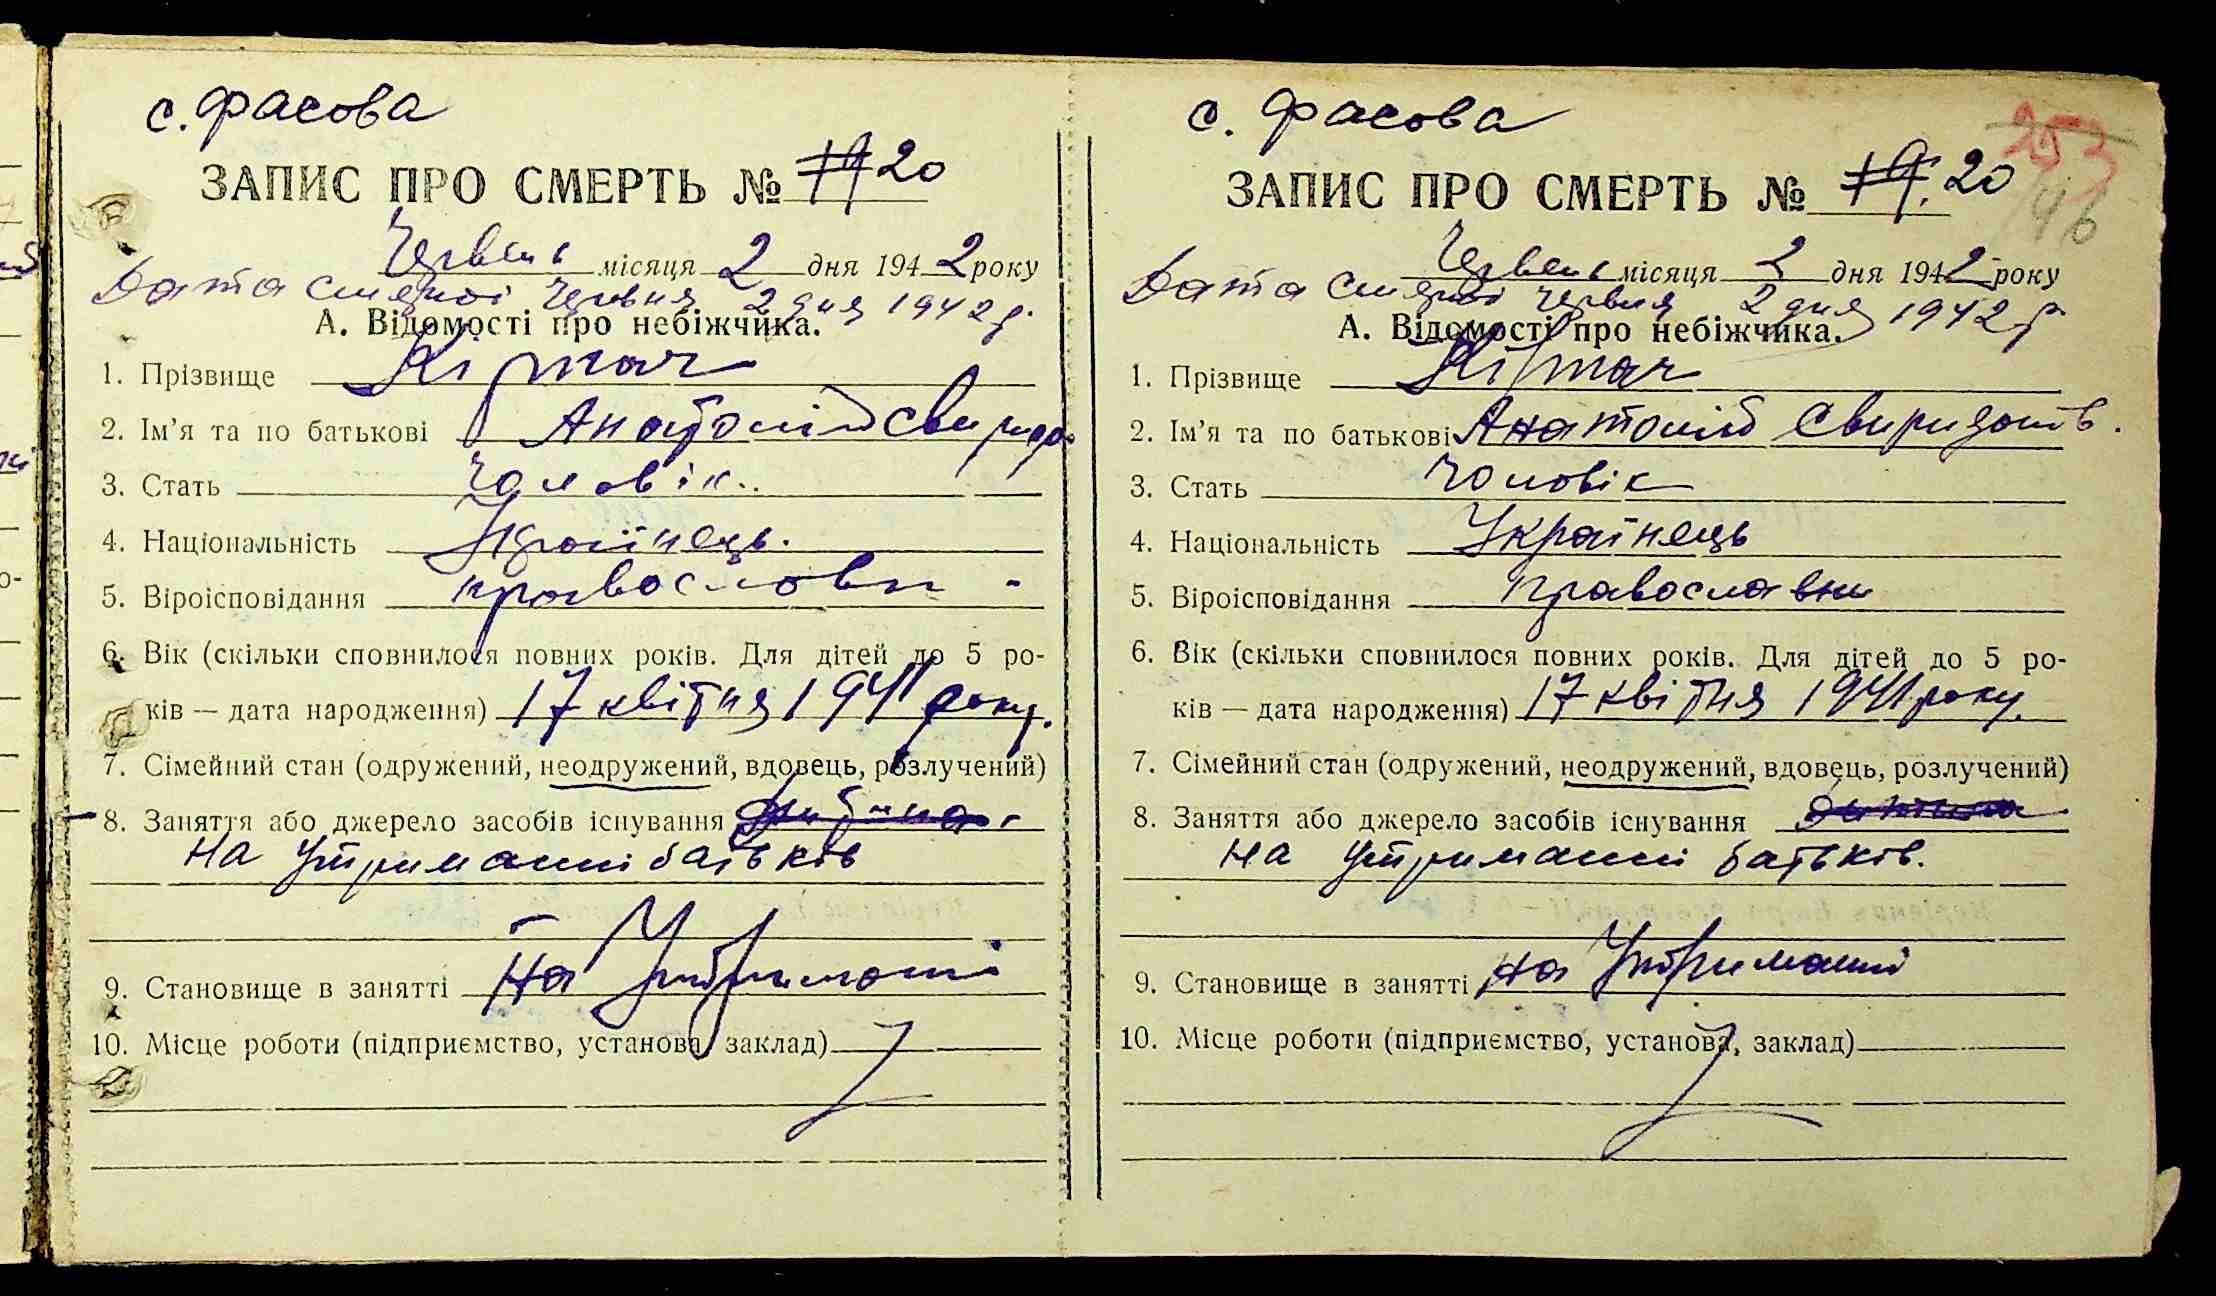 с. Фасова
ЗАПИС ПРО СМЕРТЬ № 19 20
Червень місяця 2 дня 1942 року
Дата смерті Червня 2 дня 1942 р.
А. Відомості про небіжчика.
1. Прізвище Кірпач
2. Ім'я та по батькові Анатолій Свиридо.
3. Стать Чоловік.
4. Національність Українець.
5. Віроісповідання православн -
6. Вік (скільки сповнилося повних років. Для дітей до 5 ро-
ків — дата народження) 17 квітня 1941 року.
7. Сімейний стан (одружений, неодружений, вдовець, розлучений)
8. Заняття або джерело засобів існування дитина
на утриманні батьків
9. Становище в занятті на Утриманні
10. Місце роботи (підприємство, установа, заклад)
с. Фасова
253
146
ЗАПИС ПРО СМЕРТЬ № 19. 20
Червень місяця 2 дня 1942 року
Дата смерті червня 2 дня 1942 р
А. Відомості про небіжчика.
1. Прізвище Кірпач
2. Ім'я та по батькові Анатолій Свиридов.
3. Стать Чоловік
4. Національність Українець
5. Віроісповідання православн
6. Вік (скільки сповнилося повних років. Для дітей до 5 ро-
ків — дата народження) 17 квітня 1941 року.
7. Сімейний стан (одружений, неодружений, вдовець, розлучений)
8. Заняття або джерело засобів існування дитина
на утриманні батьків.
9. Становище в занятті на Утриманні
10. Місце роботи (підприємство, установа, заклад)